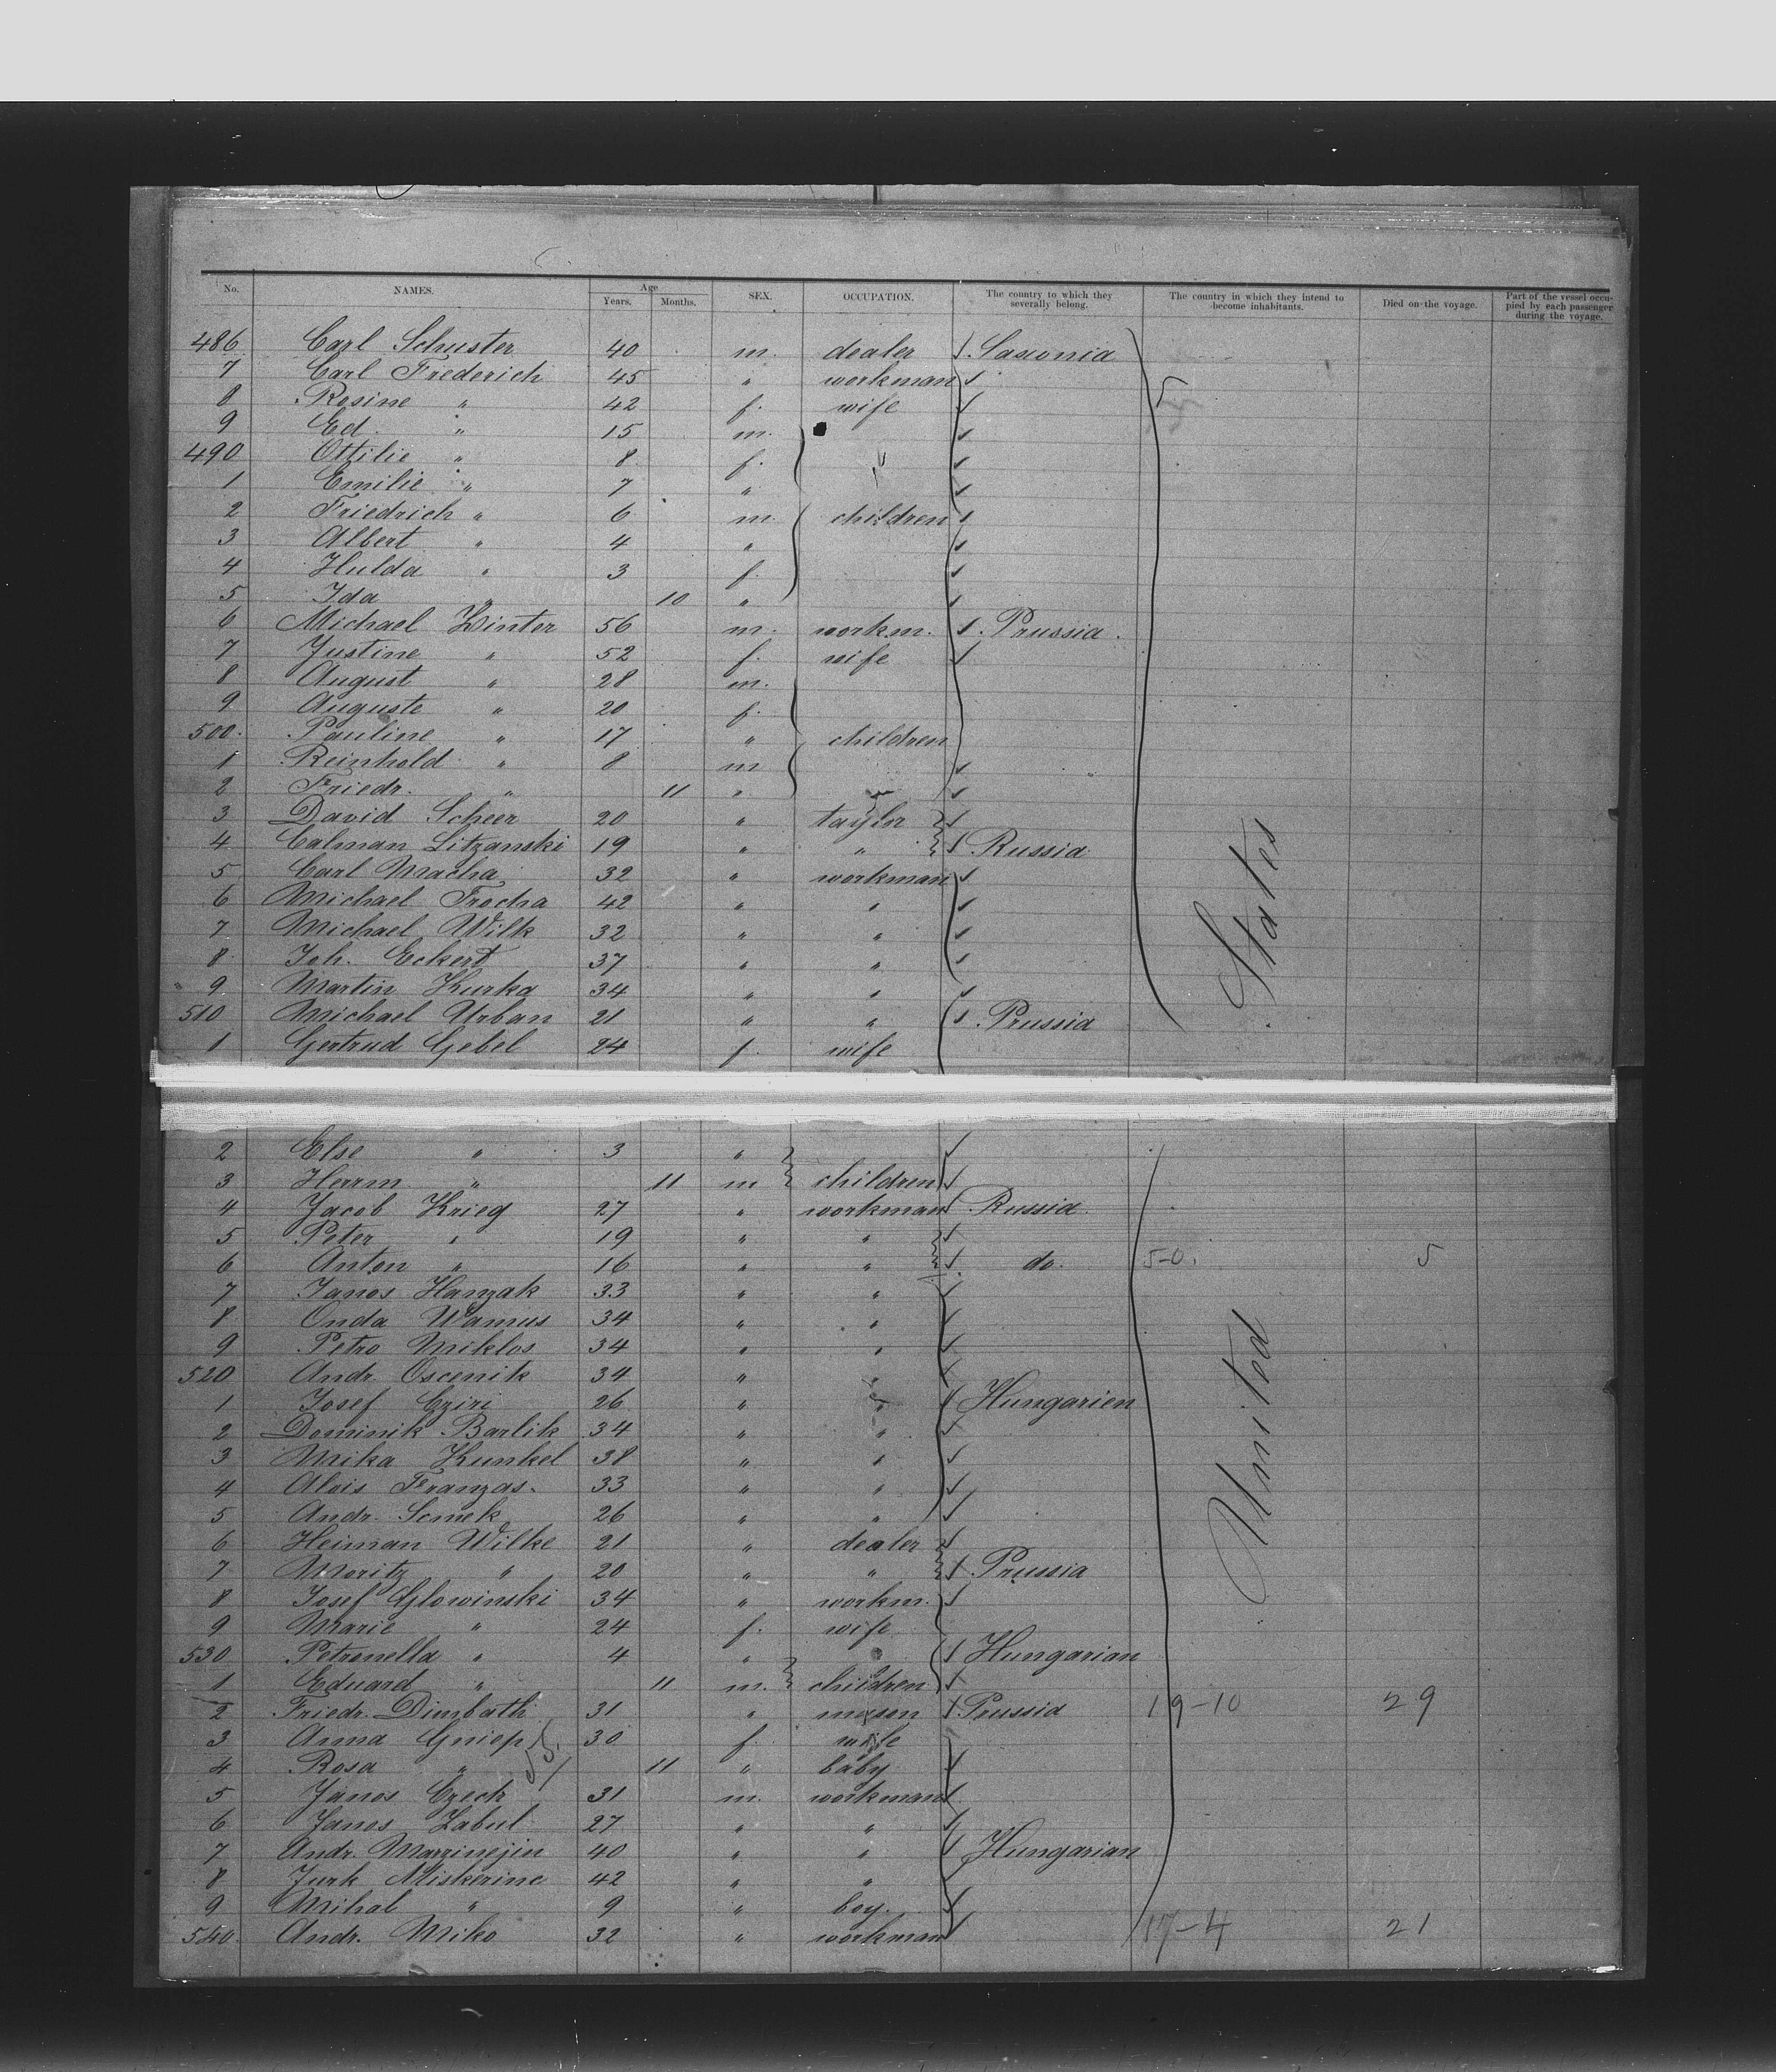 No. NAMES. Age Years. Months. SEX. OCCUPATION. The country to which they severally belong. The country in which they intend to become inhabitants. Died on the voyage. Part of the vessel occupied by each passenger during the voyage.
486 Carl Schuster 40 m. dealer Saxonia
7 Carl Frederich 45 " workman
8 Rosine " 42 f. wife
9 Ed. " 15 m.
490 Ottilie " 8 f.
1 Emilie " 7 "
2 Friedrich " 6 m. children
3 Albert " 4 "
4 Hulda " 3 f.
5 Ida " 10 "
6 Michael Winter 56 m. workm. Prussia.
7 Justine " 52 f. wife
8 August " 28 m.
9 Auguste " 20 f.
500. Pauline " 17 " children
1 Reinhold " 8 m
2 Friedr. " 11 "
3 David Scheer 20 " taylor
4 Calman Litzanski 19 " " Russia
5 Carl Macha 32 " workman
6 Michael Trocha 42 " "
7 Michael Wilk 32 " "
8 Joh. Eckert 37 " "
9 Martin Kurka 34 " "
510 Michael Urban 21 " " Prussia
1 Gertrud Gebel 24 f. wife
2 Else " 3 "
3 Herrm. " 11 m children
4 Jacob Krieg 27 " workman Russia.
5 Peter " 19 " "
6 Anton " 16 " " do. 5-0. 5
7 Janos Hanzak 33 " "
8 Onda Wamus 34 " "
9 Petro Miklos 34 " "
520 Andr. Oscenik 34 " "
1 Josef Cziri 26 " " Hungarien
2 Dominik Barlik 34 " "
3 Mika Kunkel 38 " "
4 Alois Franzas. 33 " "
5 Andr. Semek 26 " "
6 Heiman Wilke 21 " dealer
7 Moritz " 20 " " Prussia
8 Josef Glowinski 34 " workm.
9 Marie " 24 f. wife
530 Petronella " 4 " Hungarian
1 Eduard " 11 m. children
2 Friedr. Dimbath 31 " mason Prussia 19-10 29
3 Anna Gniep 30 f. wife
4 Rosa " 11 " baby
5 Janos Czech 31 m. workman
6 Janos Zabul 27 " "
7 Andr. Marzinejin 40 " " Hungarian
8 Jurk Miskerine 42 " "
9 Mihal " 9 " boy.
540. Andr. Miko 32 " workman 17-4 21
United States